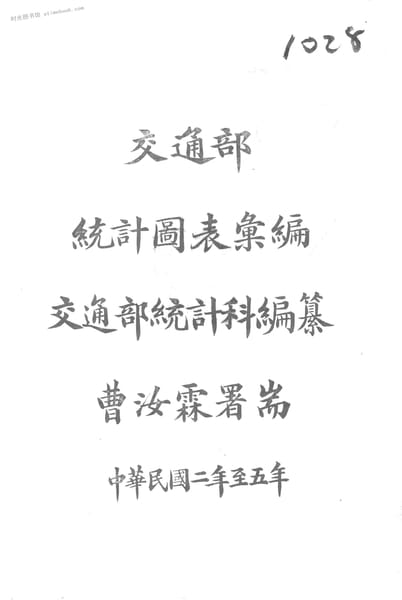 时光图书馆 stimebook.com
1028
交通部
統計圖表彙編
交通部統計科編纂
曹汝霖署耑
中華民國二年至五年